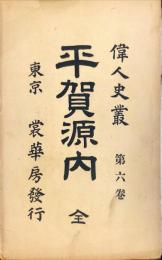 偉人史叢
第六卷
平賀源内
全
東京 裳華房發行